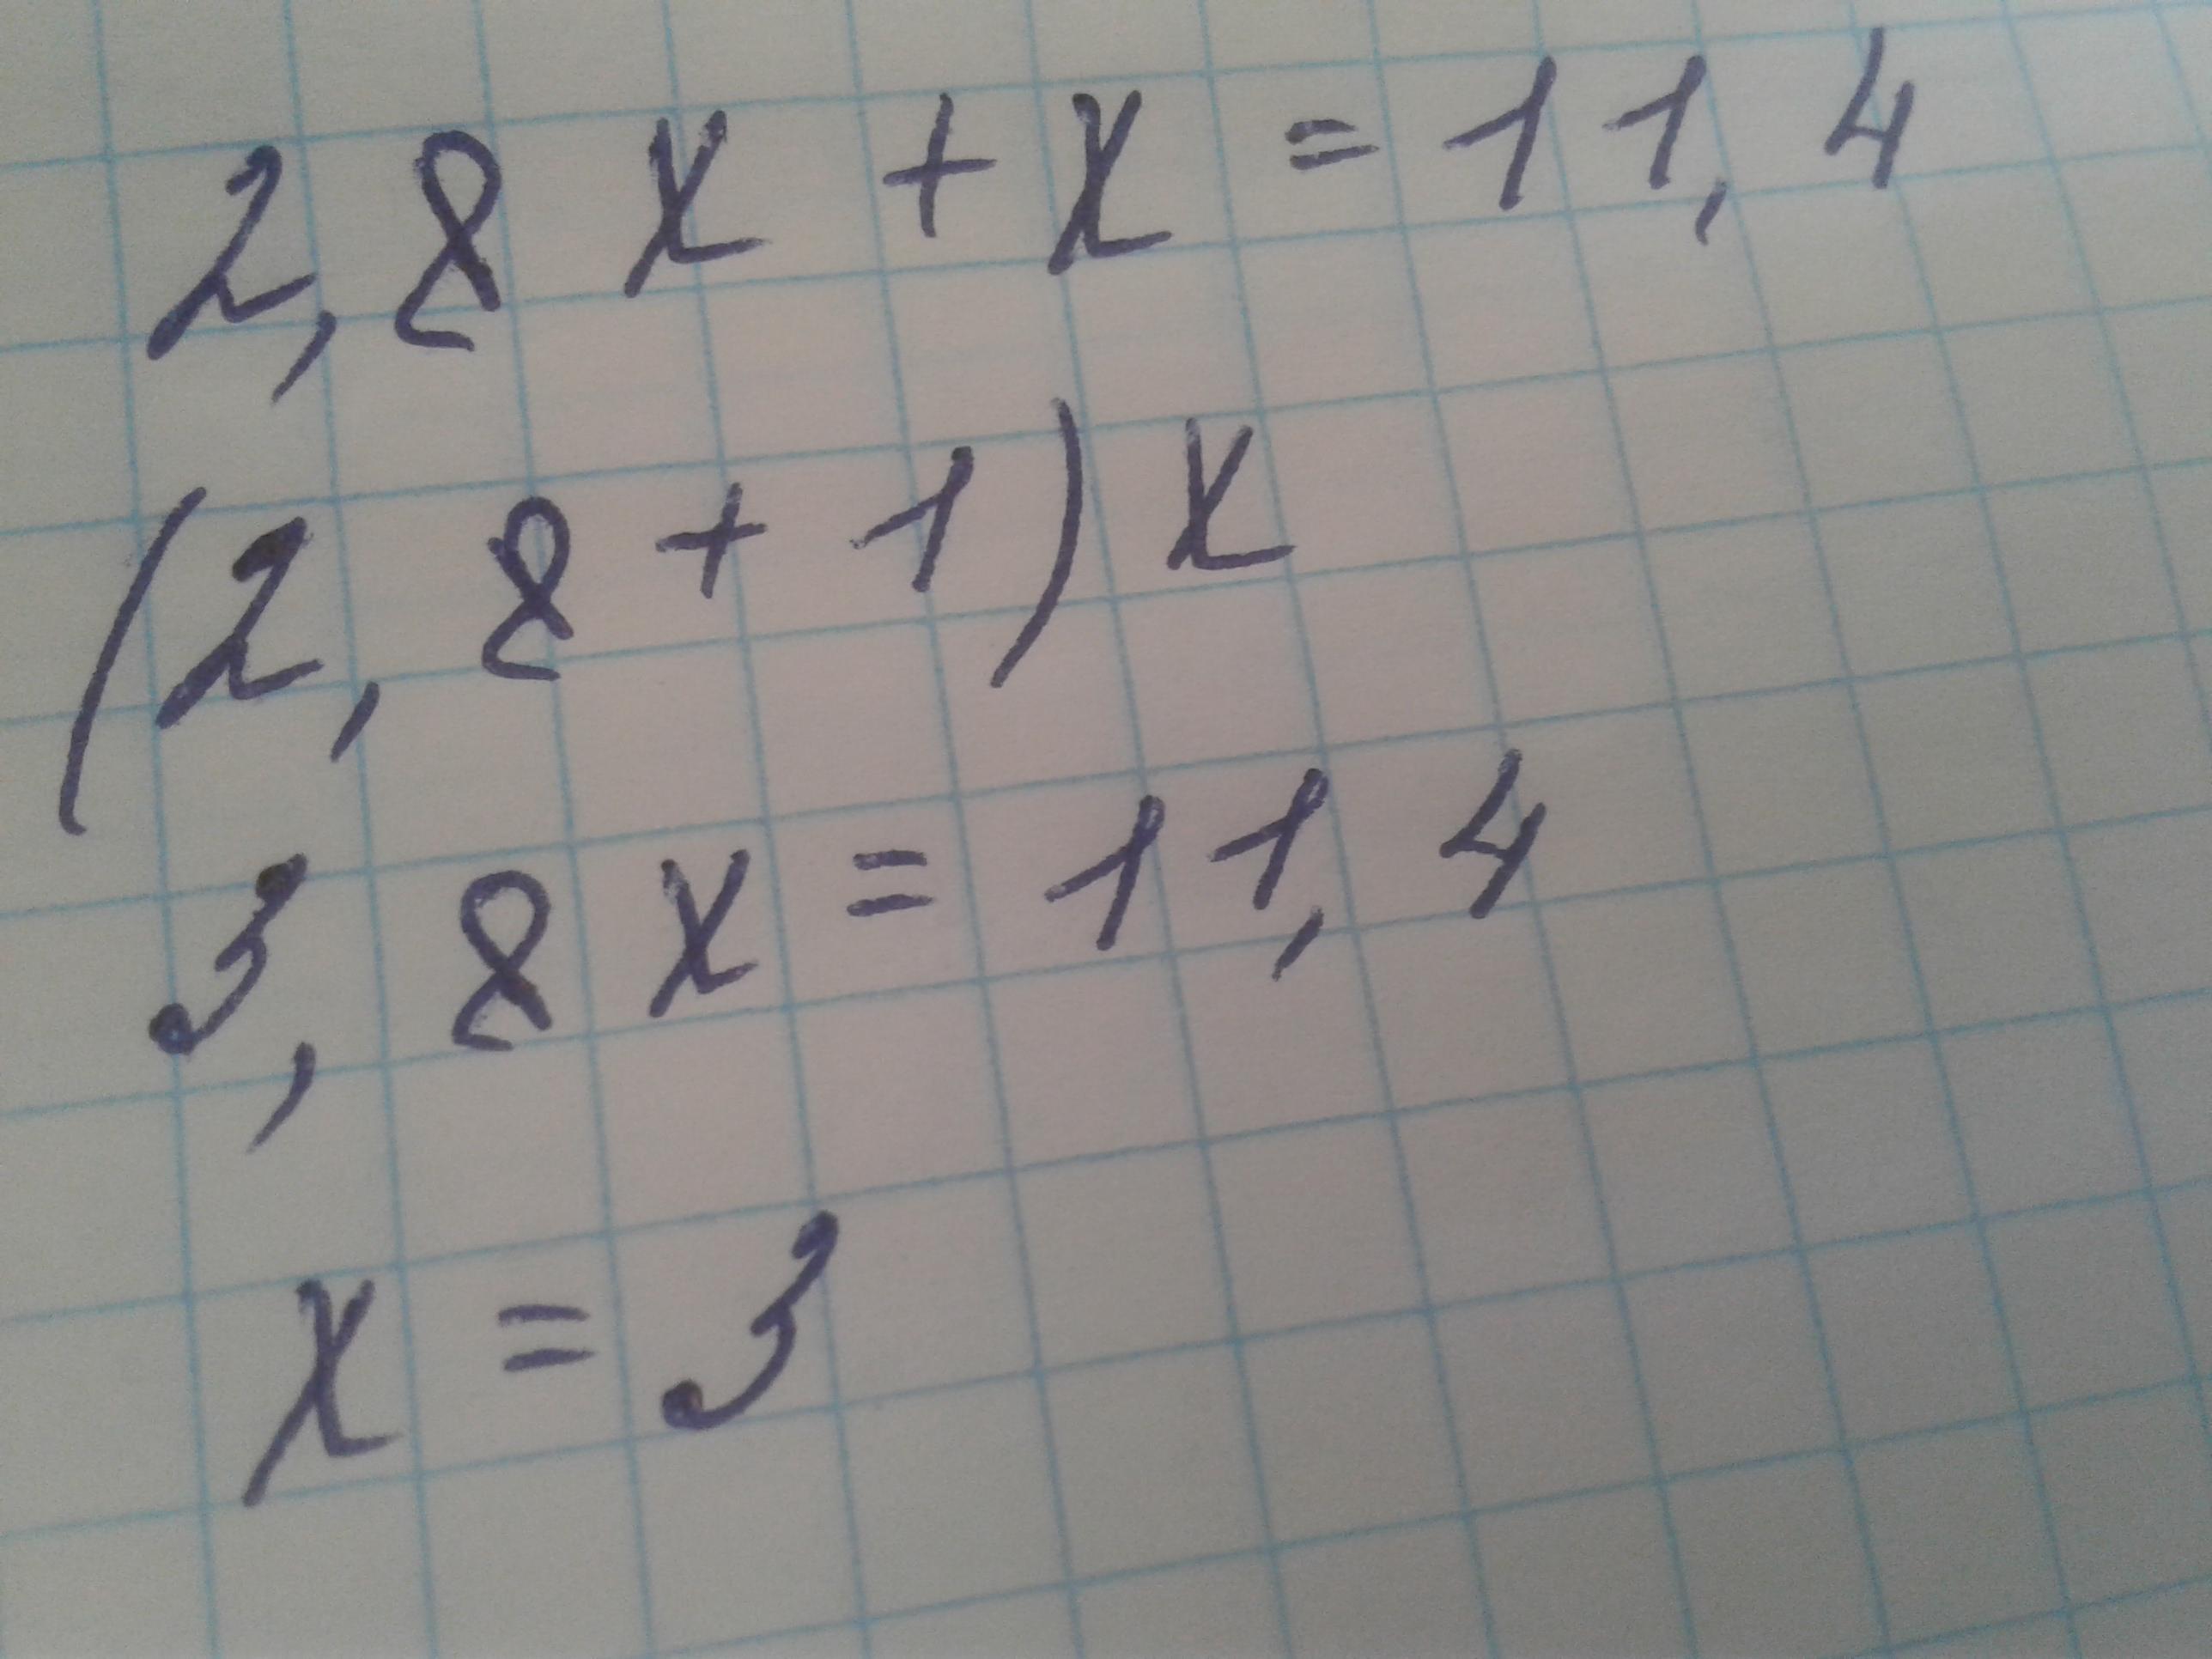 2,8x+x=11,4
(2,8+1)x
3,8x=11,4
x=3